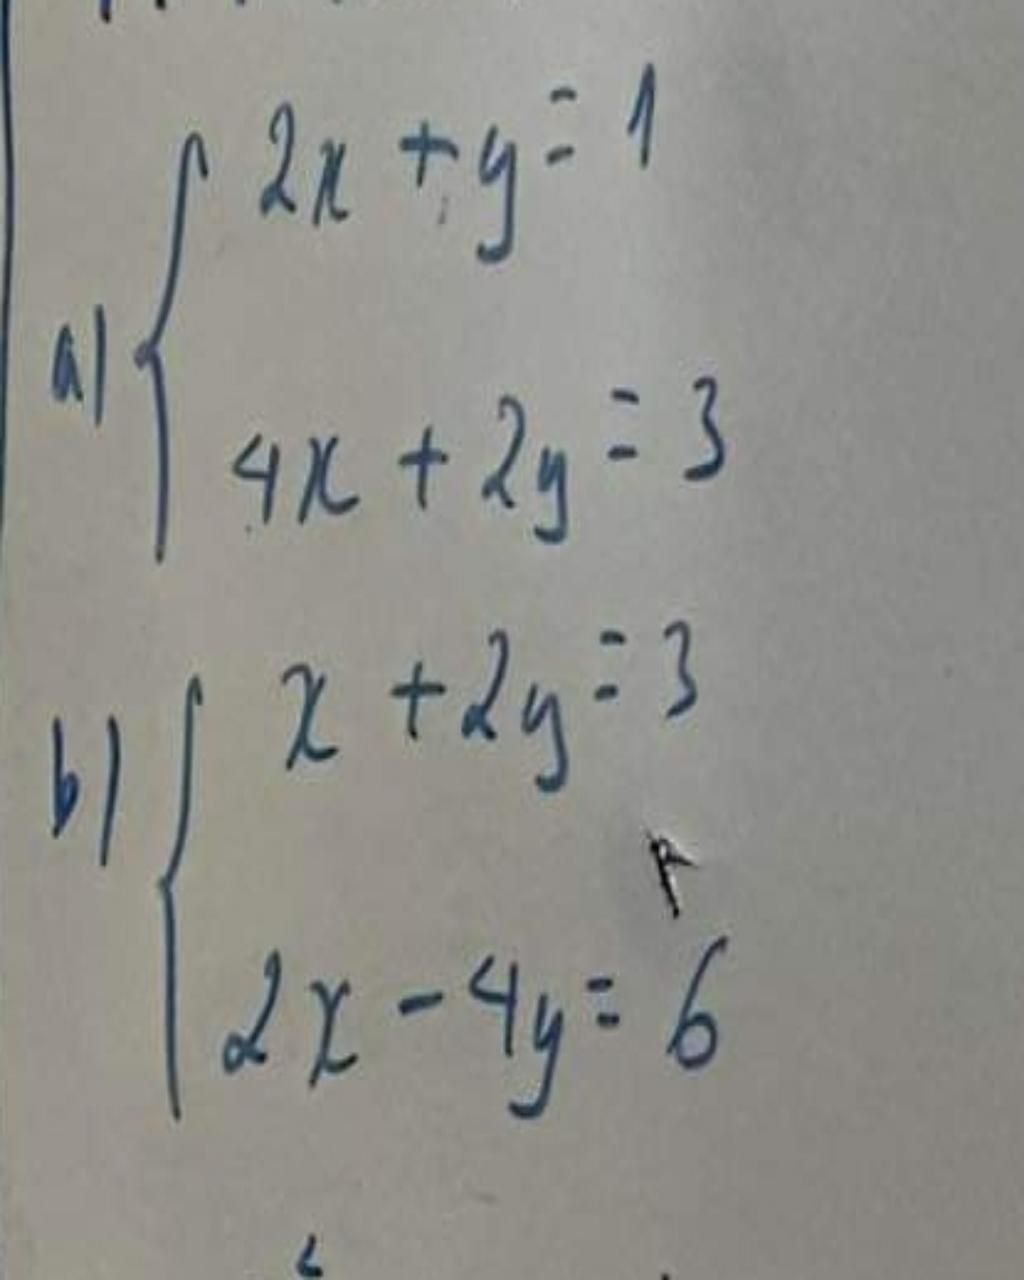 a) { 2x + y = 1
4x + 2y = 3
b) { x + 2y = 3
2x - 4y = 6